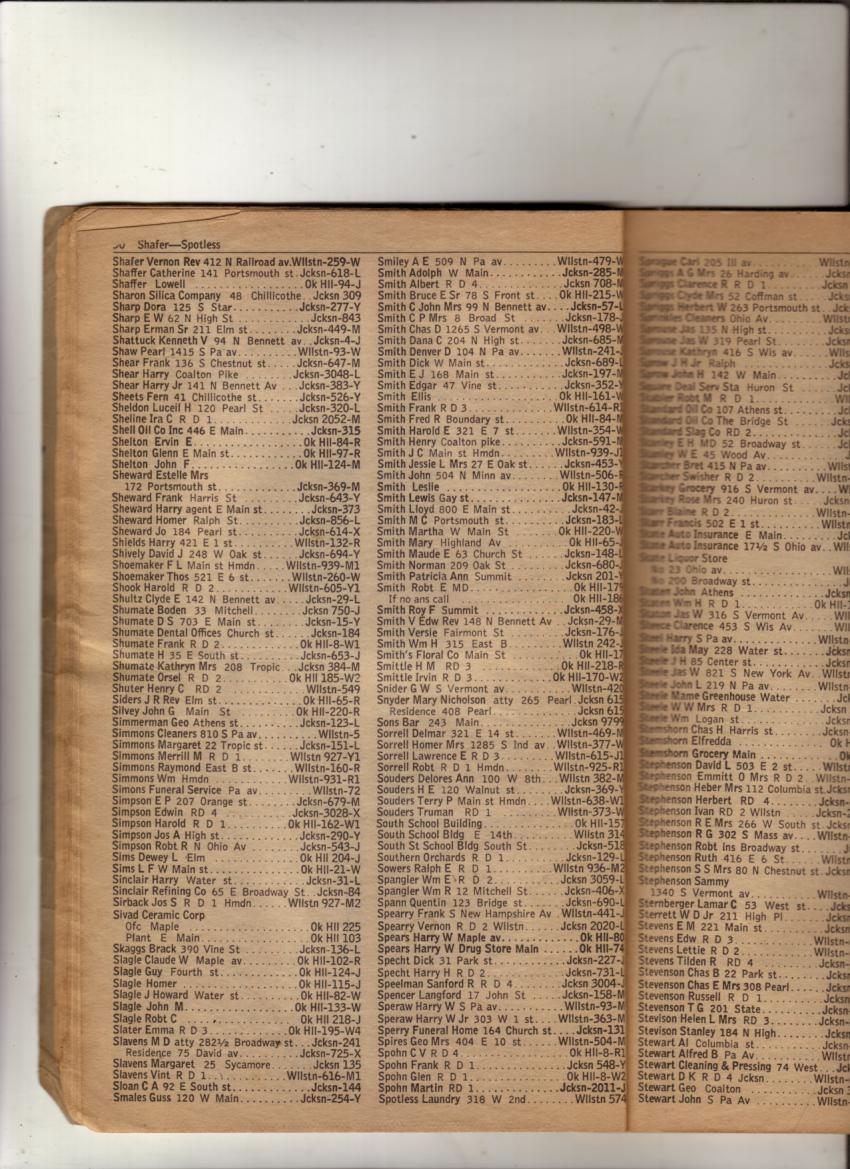 Shafer—Spotless
Shafer Vernon Rev 412 N Railroad av.Wllstn-259-W
Shaffer Catherine 141 Portsmouth st.Jcksn-618-L
Shaffer Lowell ..........Ok Hll-94-J
Sharon Silica Company 48 Chillicothe.Jcksn 309
Sharp Dora 125 S Star..........Jcksn-277-Y
Sharp E W 62 N High St..........Jcksn-843
Sharp Erman Sr 211 Elm st..........Jcksn-449-M
Shattuck Kenneth V 94 N Bennett av..Jcksn-4-J
Shaw Pearl 1415 S Pa av..........Wllstn-93-W
Shear Frank 136 S Chestnut st....Jcksn-647-M
Shear Harry Coalton Pike..........Jcksn-3048-L
Shear Harry Jr 141 N Bennett Av...Jcksn-383-Y
Sheets Fern 41 Chillicothe st......Jcksn-526-Y
Sheldon Luceil H 120 Pearl St......Jcksn-320-L
Sheline Ira C R D 1..........Jcksn 2052-M
Shell Oil Co Inc 446 E Main..........Jcksn-315
Shelton Ervin E..........Ok Hll-84-R
Shelton Glenn E Main st..........Ok Hll-97-R
Shelton John F..........Ok Hll-124-M
Sheward Estelle Mrs
172 Portsmouth st..........Jcksn-369-M
Sheward Frank Harris St..........Jcksn-643-Y
Sheward Harry agent E Main st......Jcksn-373
Sheward Homer Ralph St..........Jcksn-856-L
Sheward Jo 184 Pearl st..........Jcksn-614-X
Shields Harry 421 E 1 st..........Wllstn-132-R
Shively David J 248 W Oak st......Jcksn-694-Y
Shoemaker F L Main st Hmdn...Wllstn-939-M1
Shoemaker Thos 521 E 6 st......Wllstn-260-W
Shook Harold R D 2..........Wllstn-605-Y1
Shultz Clyde E 142 N Bennett av....Jcksn-29-L
Shumate Boden 33 Mitchell......Jcksn 750-J
Shumate D S 703 E Main st......Jcksn-15-Y
Shumate Dental Offices Church st....Jcksn-184
Shumate Frank R D 2..........Ok Hll-8-W1
Shumate H 35 E South st..........Jcksn-653-J
Shumate Kathryn Mrs 208 Tropic...Jcksn 384-M
Shumate Orsel R D 2..........Ok Hll 185-W2
Shuter Henry C RD 2..........Wllstn-549
Siders J R Rev Elm st..........Ok Hll-65-R
Silvey John G Main St..........Ok Hll-220-R
Simmerman Geo Athens st..........Jcksn-123-L
Simmons Cleaners 810 S Pa av......Wllstn-5
Simmons Margaret 22 Tropic st......Jcksn-151-L
Simmons Merrill M R D 1......Wllstn 927-Y1
Simmons Raymond East B st......Wllstn-160-R
Simmons Wm Hmdn..........Wllstn-931-R1
Simons Funeral Service Pa av......Wllstn-72
Simpson E P 207 Orange st......Jcksn-679-M
Simpson Edwin RD 4..........Jcksn-3028-X
Simpson Harold R D 1..........Ok Hll-162-W1
Simpson Jos A High st..........Jcksn-290-Y
Simpson Robt R N Ohio Av......Jcksn-543-J
Sims Dewey L Elm..........Ok Hll 204-J
Sims L F W Main st..........Ok Hll-21-W
Sinclair Harry Water st..........Jcksn-31-L
Sinclair Refining Co 65 E Broadway St..Jcksn-84
Sirback Jos S R D 1 Hmdn......Wllstn 927-M2
Sivad Ceramic Corp
Ofc Maple Ok Hll 225
Plant E Main Ok Hll 103
Skaggs Brack 390 Vine St..........Jcksn-136-L
Slagle Claude W Maple av..........Ok Hll-102-R
Slagle Guy Fourth st..........Ok Hll-124-J
Slagle Homer ..........Ok Hll-115-J
Slagle J Howard Water st..........Ok Hll-82-W
Slagle John M..........Ok Hll-133-W
Slagle Robt C..........Ok Hll 218-J
Slater Emma R D 3..........Ok Hll-195-W4
Slavens M D atty 282½ Broadway st..Jcksn-241
Residence 75 David av..........Jcksn-725-X
Slavens Margaret 25 Sycamore......Jcksn 135
Slavens Vint R D 1..........Wllstn-616-M1
Sloan C A 92 E South st..........Jcksn-144
Smales Guss 120 W Main..........Jcksn-254-Y
Smiley A E 509 N Pa av..........Wllstn-479-W
Smith Adolph W Main..........Jcksn-285-M
Smith Albert R D 4..........Jcksn 708-M
Smith Bruce E Sr 78 S Front st....Ok Hll-215-W
Smith C John Mrs 99 N Bennett av....Jcksn-57-L
Smith C P Mrs 8 Broad St..........Jcksn-178-J
Smith Chas D 1265 S Vermont av...Wllstn-498-W
Smith Dana C 204 N High st......Jcksn-685-M
Smith Denver D 104 N Pa av......Wllstn-241-
Smith Dick W Main st..........Jcksn-689-L
Smith E J 168 Main st..........Jcksn-197-M
Smith Edgar 47 Vine st..........Jcksn-352-Y
Smith Ellis ..........Ok Hll-161-W
Smith Frank R D 3..........Wllstn-614-R
Smith Fred R Boundary st..........Ok Hll-84-M
Smith Harold E 321 E 7 st......Wllstn-354-W
Smith Henry Coalton pike..........Jcksn-591-M
Smith J C Main st Hmdn..........Wllstn-939-J
Smith Jessie L Mrs 27 E Oak st......Jcksn-453-Y
Smith John 504 N Minn av......Wllstn-506-
Smith Leslie ..........Ok Hll-130-
Smith Lewis Gay st..........Jcksn-147-M
Smith Lloyd 800 E Main st..........Jcksn-42-J
Smith M C Portsmouth st..........Jcksn-183-L
Smith Martha W Main St..........Ok Hll-220-W
Smith Mary Highland Av..........Ok Hll-65-J
Smith Maude E 63 Church St......Jcksn-148-L
Smith Norman 209 Oak St..........Jcksn-680-J
Smith Patricia Ann Summit......Jcksn 201-Y
Smith Robt E MD..........Ok Hll-17
If no ans call ..........Ok Hll-18
Smith Roy F Summit..........Jcksn-458-X
Smith V Edw Rev 148 N Bennett Av...Jcksn-29-M
Smith Versie Fairmont St..........Jcksn-176-J
Smith Wm H 315 East B..........Wllstn 242-J
Smith's Floral Co Main St..........Ok Hll-17
Smittle H M RD 3..........Ok Hll-218-R
Smittle Irvin R D 3..........Ok Hll-170-W2
Snider G W S Vermont av..........Wllstn-420
Snyder Mary Nicholson atty 265 Pearl.Jcksn 615
Residence 408 Pearl..........Jcksn 615
Sons Bar 243 Main..........Jcksn 9799
Sorrell Delmar 321 E 14 st......Wllstn-469-M
Sorrell Homer Mrs 1285 S Ind av...Wllstn-377-W
Sorrell Lawrence E R D 3......Wllstn-615-J
Sorrell Robt R D 1 Hmdn......Wllstn-925-R1
Souders Delores Ann 100 W 8th...Wllstn 382-M
Souders H E 120 Walnut st......Jcksn-369-Y
Souders Terry P Main st Hmdn...Wllstn-638-W1
Souders Truman RD 1..........Wllstn-373-W
South School Building..........Ok Hll-157
South School Bldg E 14th..........Wllstn 314
South St School Bldg South St......Jcksn-518
Southern Orchards R D 1..........Jcksn-129-L
Sowers Ralph E R D 1..........Wllstn 936-M2
Spangler Wm E R D 2..........Jcksn 3059-L
Spangler Wm R 12 Mitchell St......Jcksn-406-X
Spann Quentin 123 Bridge st......Jcksn-690-L
Spearry Frank S New Hampshire Av..Wllstn-441-J
Spearry Vernon R D 2 Wllstn......Jcksn 2020-L
Spears Harry W Maple av..........Ok Hll-80
Spears Harry W Drug Store Main...Ok Hll-74
Specht Dick 31 Park st..........Jcksn-227-J
Specht Harry H R D 2..........Jcksn-731-L
Speelman Sanford R R D 4..........Jcksn 3004-J
Spencer Langford 17 John st......Jcksn-158-M
Speraw Harry W S Pa av..........Wllstn-93-M
Speraw Harry W Jr 303 W 1 st....Wllstn-363-M
Sperry Funeral Home 164 Church st....Jcksn-131
Spires Geo Mrs 404 E 10 st......Wllstn-504-M
Spohn C V R D 4..........Ok Hll-8-R1
Spohn Frank R D 1..........Jcksn 548-Y
Spohn Glen R D 1..........Ok Hll-8-W2
Spohn Martin RD 1..........Jcksn-2011-J
Spotless Laundry 318 W 2nd......Wllstn 574
Sprague Carl 205 Ill av......Wllstn
A G Mrs 26 Harding av...Jcksn
Clarence R R D 1......Jcksn
Clyde Mrs 52 Coffman st...Jcksn
Herbert W 263 Portsmouth st.Jcksn
Cleaners Ohio Av
Jas 135 N High st
Jas W 319 Pearl St
Kathryn 416 S Wis av
J H Jr Ralph
John H 142 W Main
Deal Serv Sta Huron St
Robt M R D 1
Standard Oil Co 107 Athens st
Standard Oil Co The Bridge St
Standard Slag Co RD 2
E H MD 52 Broadway st
W E 45 Wood Av
Bret 415 N Pa av
Swisher R D 2
Grocery 916 S Vermont av
Rose Mrs 240 Huron st
Blaine R D 2
Francis 502 E 1 st
State Auto Insurance E Main
State Auto Insurance 17½ S Ohio av..Wll
State Liquor Store
No 23 Ohio av
No 200 Broadway st
John Athens
Wm H R D 1
Jas W 316 S Vermont av
Clarence 453 S Wis Av
Steel Harry S Pa av
Steele Ida May 228 Water st
Steele J H 85 Center st
Steele Jas W 821 S New York Av
Steele John L 219 N Pa av
Steele Mame Greenhouse Water
Steele W W Mrs R D 1
Steele Wm Logan st
Stemshorn Chas H Harris st
Stemshorn Elfredda
Stemshorn Grocery Main
Stephenson David L 503 E 2 st...Wllstn
Stephenson Emmitt O Mrs R D 2...Wllstn-
Stephenson Heber Mrs 112 Columbia st.Jcksn
Stephenson Herbert RD 4......Jcksn-
Stephenson Ivan RD 2 Wllstn......Jcksn-
Stephenson R E Mrs 266 W South st.Jcksn
Stephenson R G 302 S Mass av...Wllstn-
Stephenson Robt Ins Broadway st...Jcksn
Stephenson Ruth 416 E 6 St......Wllstn-
Stephenson S S Mrs 80 N Chestnut st.Jcksn
Stephenson Sammy
340 S Vermont av..........Wllstn-
Sternberger Lamar C 53 West st...Jcksn-
Sterrett W D Jr 211 High Pl......Jcksn-
Stevens E M 221 Main st..........Jcksn
Stevens Edw R D 3..........Wllstn-
Stevens Lettie R D 2..........Wllstn-
Stevens Tilden R RD 4..........Jcksn-
Stevenson Chas B 22 Park st......Jcksn-
Stevenson Chas E Mrs 308 Pearl....Jcksn-
Stevenson Russell R D 1..........Jcksn-
Stevenson T G 201 State..........Jcksn-
Stevison Helen L Mrs RD 3......Wllstn-
Stevison Stanley 184 N High......Jcksn-
Stewart Al Columbia st..........Jcksn-
Stewart Alfred B Pa Av..........Wllstn-
Stewart Cleaning & Pressing 74 West..Jck
Stewart D K R D 4 Jcksn..........Wllstn-
Stewart Geo Coalton ..........Jcksn
Stewart John S Pa Av..........Wllstn-